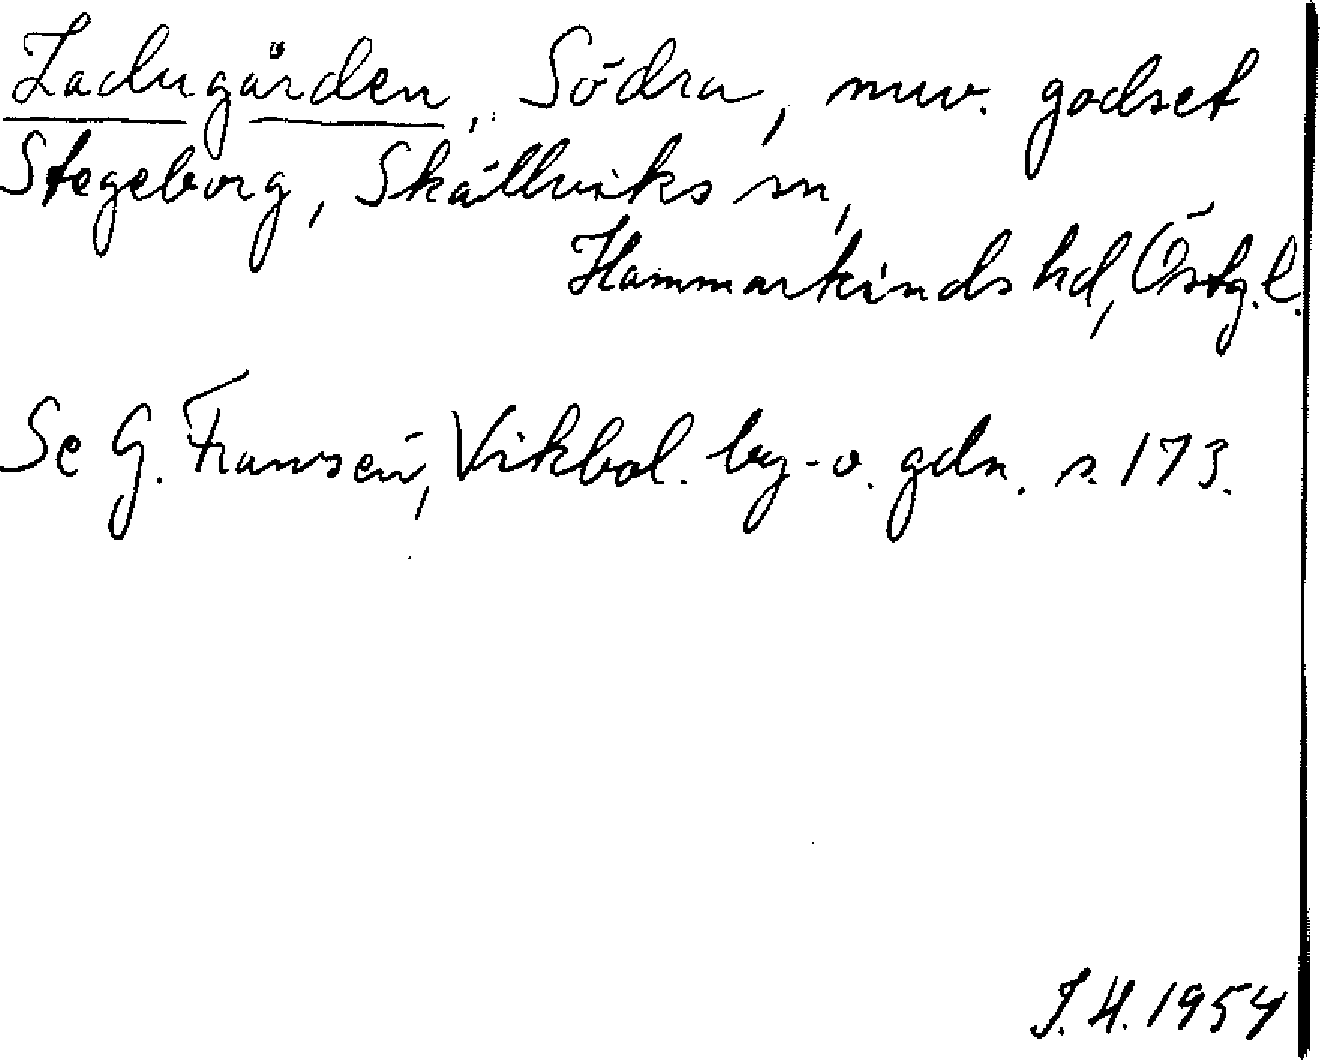 Ladugården, Södra, nuv. godset
Stegeborg, Skällviks sn,
Hammarkinds hd, Östg.l.
Se G. Franzén, Vikbol. by- o. gdn. s. 173.
J.H. 1954